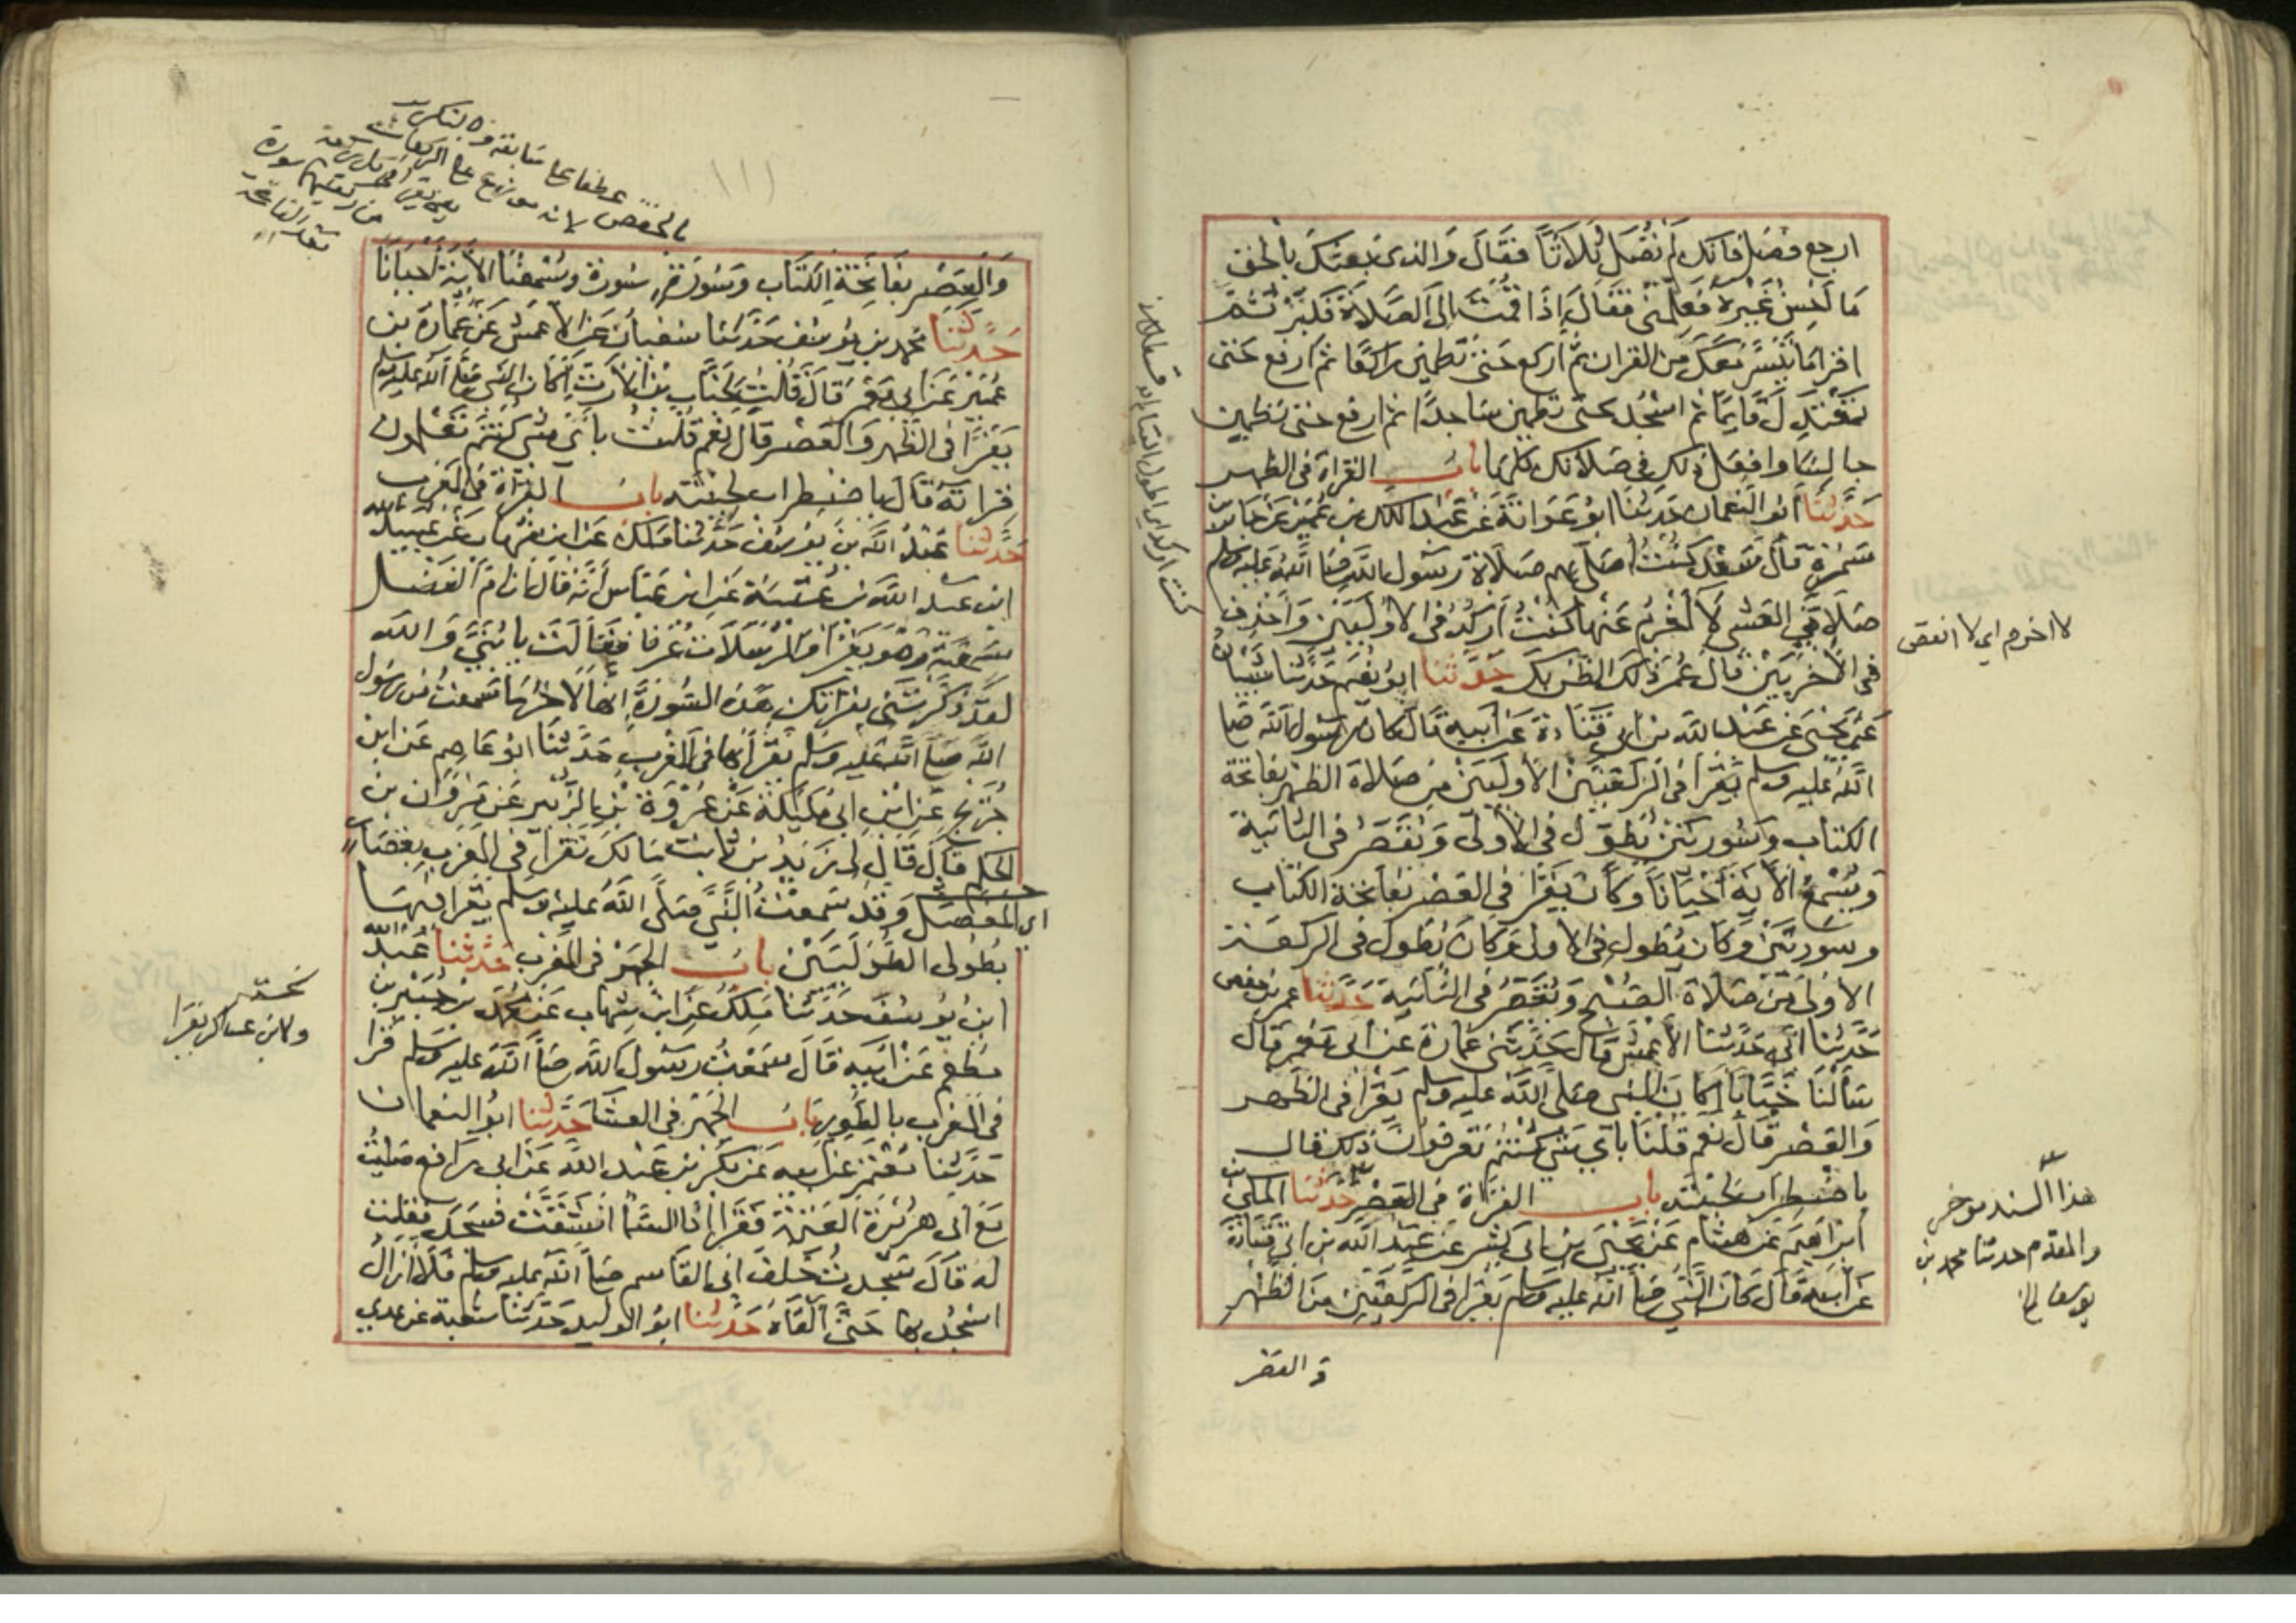 ارجع فصل فانك لم تصل ثلاثا فقال والذي بعثك بالحق
ما احسن غيره فعلمني فقال اذا قمت الى الصلاة فكبر ثم
اقرا ما تيسر معك من القران ثم اركع حتى تطمين راكعا ثم ارفع حتى
تعتدل قايما ثم اسجد حتى تطمين ساجدا ثم ارفع حتى تطمين
جالسا وافعل ذلك في صلاتك كلها باب القراة في الظهر
حدثنا ابو النعمان حدثنا ابو عوانة عن عبد الملك بن عمير عن جابر بن
سمرة قال سعد كنت اصلي بهم صلاة رسول الله صلى الله عليه وسلم
صلاتي العشي لا اخرم عنها كنت اركد في الاوليين واحذف
في الاخريين قال عمر ذلك الظن بك حدثنا ابو نعيم حدثنا شيبان
عن يحيى عن عبد الله بن ابي قتادة عن ابيه قال كان رسول الله صلى
الله عليه وسلم يقرا في الركعتين الاوليين من صلاة الظهر بفاتحة
الكتاب وسورتين يطول في الاولى ويقصر في الثانية
ويسمع الاية احيانا وكان يقرا في العصر بفاتحة الكتاب
وسورتين وكان يطول في الاولى وكان يطول في الركعة
الاولى من صلاة الصبح ويقصر في الثانية حدثنا عمر بن حفص
حدثنا ابي حدثنا الاعمش قال حدثني عمارة عن ابي معمر قال
سالنا خبابا اكان النبي صلى الله عليه وسلم يقرا في الظهر
والعصر قال نعم قلنا باي شي كنتم تعرفون ذلك قال
باضطراب لحيته باب القراة في العصر حدثنا المكي بن
ابراهيم عن هشام عن يحيى بن ابي كثير عن عبد الله بن ابي قتادة
عن ابيه قال كان النبي صلى الله عليه وسلم يقرا في الركعتين من الظهر
والعصر
لا اخرم اي لا انقص
هذا السند موخر
والمقدم حدثنا محمد بن
يوسف الخ
كنت اركد اي اطول القيام
والعصر بفاتحة الكتاب وسورة سورة ويسمعنا الاية احيانا
حدثنا محمد بن يوسف حدثنا سفيان عن الاعمش عن عمارة بن
عمير عن ابي معمر قال قلت لخباب بن الارت اكان النبي صلى الله عليه وسلم
يقرا في الظهر والعصر قال نعم قلت باي شي كنتم تعلمون
قراته قال باضطراب لحيته باب القراة في المغرب
حدثنا عبد الله بن يوسف حدثنا ملك عن ابن شهاب عن عبيد الله
ابن عبد الله بن عتبة عن ابن عباس انه قال ان ام الفضل
سمعته وهو يقرا والمرسلات عرفا فقالت يا بني والله
لقد ذكرتني بقراتك هذه السورة انها لاخر ما سمعت من رسول
الله صلى الله عليه وسلم يقرا بها في المغرب حدثنا ابو عاصم عن ابن
جريج عن ابن ابي مليكة عن عروة بن الزبير عن مروان بن
الحكم قال قال لي زيد بن ثابت مالك تقرا في المغرب بقصار
اي المفصل وقد سمعت النبي صلى الله عليه وسلم يقرا فيها
بطولى الطوليين باب الجهر في المغرب حدثنا عبد الله
ابن يوسف حدثنا ملك عن ابن شهاب عن محمد بن جبير بن
مطعم عن ابيه قال سمعت رسول الله صلى الله عليه وسلم قرا
في المغرب بالطور باب الجهر في العشا حدثنا ابو النعمان
حدثنا معتمر عن ابيه عن بكر بن عبد الله عن ابي رافع صليت
مع ابي هريرة العتمة فقرا اذا السما انشقت فسجد فقلت
له قال سجدت خلف ابي القاسم صلى الله عليه وسلم فلا ازال
اسجد بها حتى القاه حدثنا ابو الوليد حدثنا شعبة عن عدي
ولابن عساكر يقرا